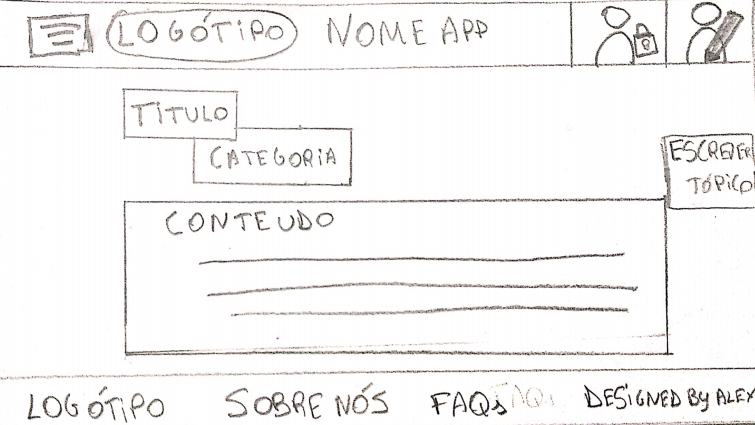 LOGÓTIPO NOME APP
TITULO
CATEGORIA
ESCREVER
TÓPICO
CONTEUDO
LOGÓTIPO SOBRE NÓS FAQs FAQs DESIGNED BY ALEX